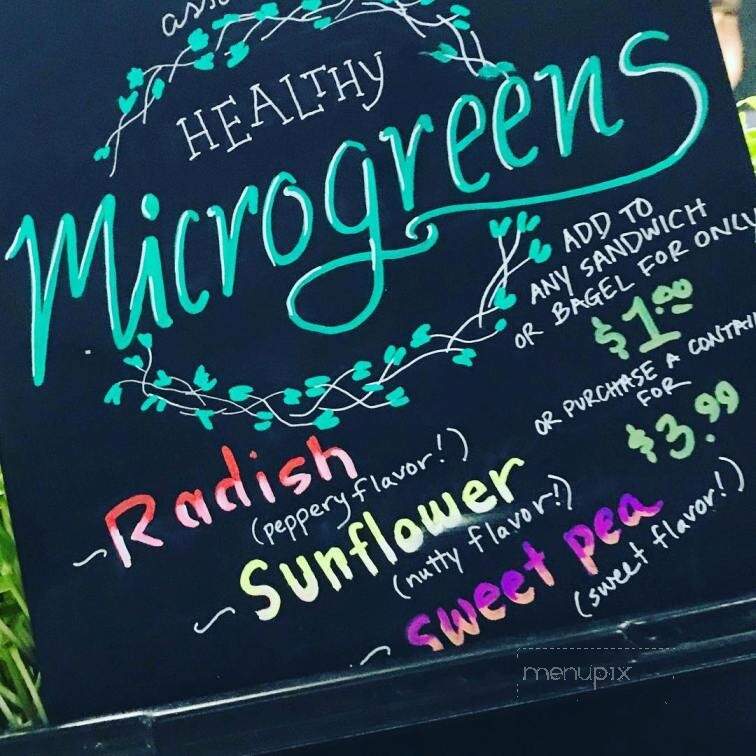 HEALTHY
Microgreens
ADD TO
ANY SANDWICH
OR BAGEL FOR ONLY
$1.00
OR PURCHASE A
FOR
$3.99
~ Radish
(peppery flavor!)
~ Sunflower
(nutty flavor!)
~ sweet pea
(sweet flavor!)
menupix